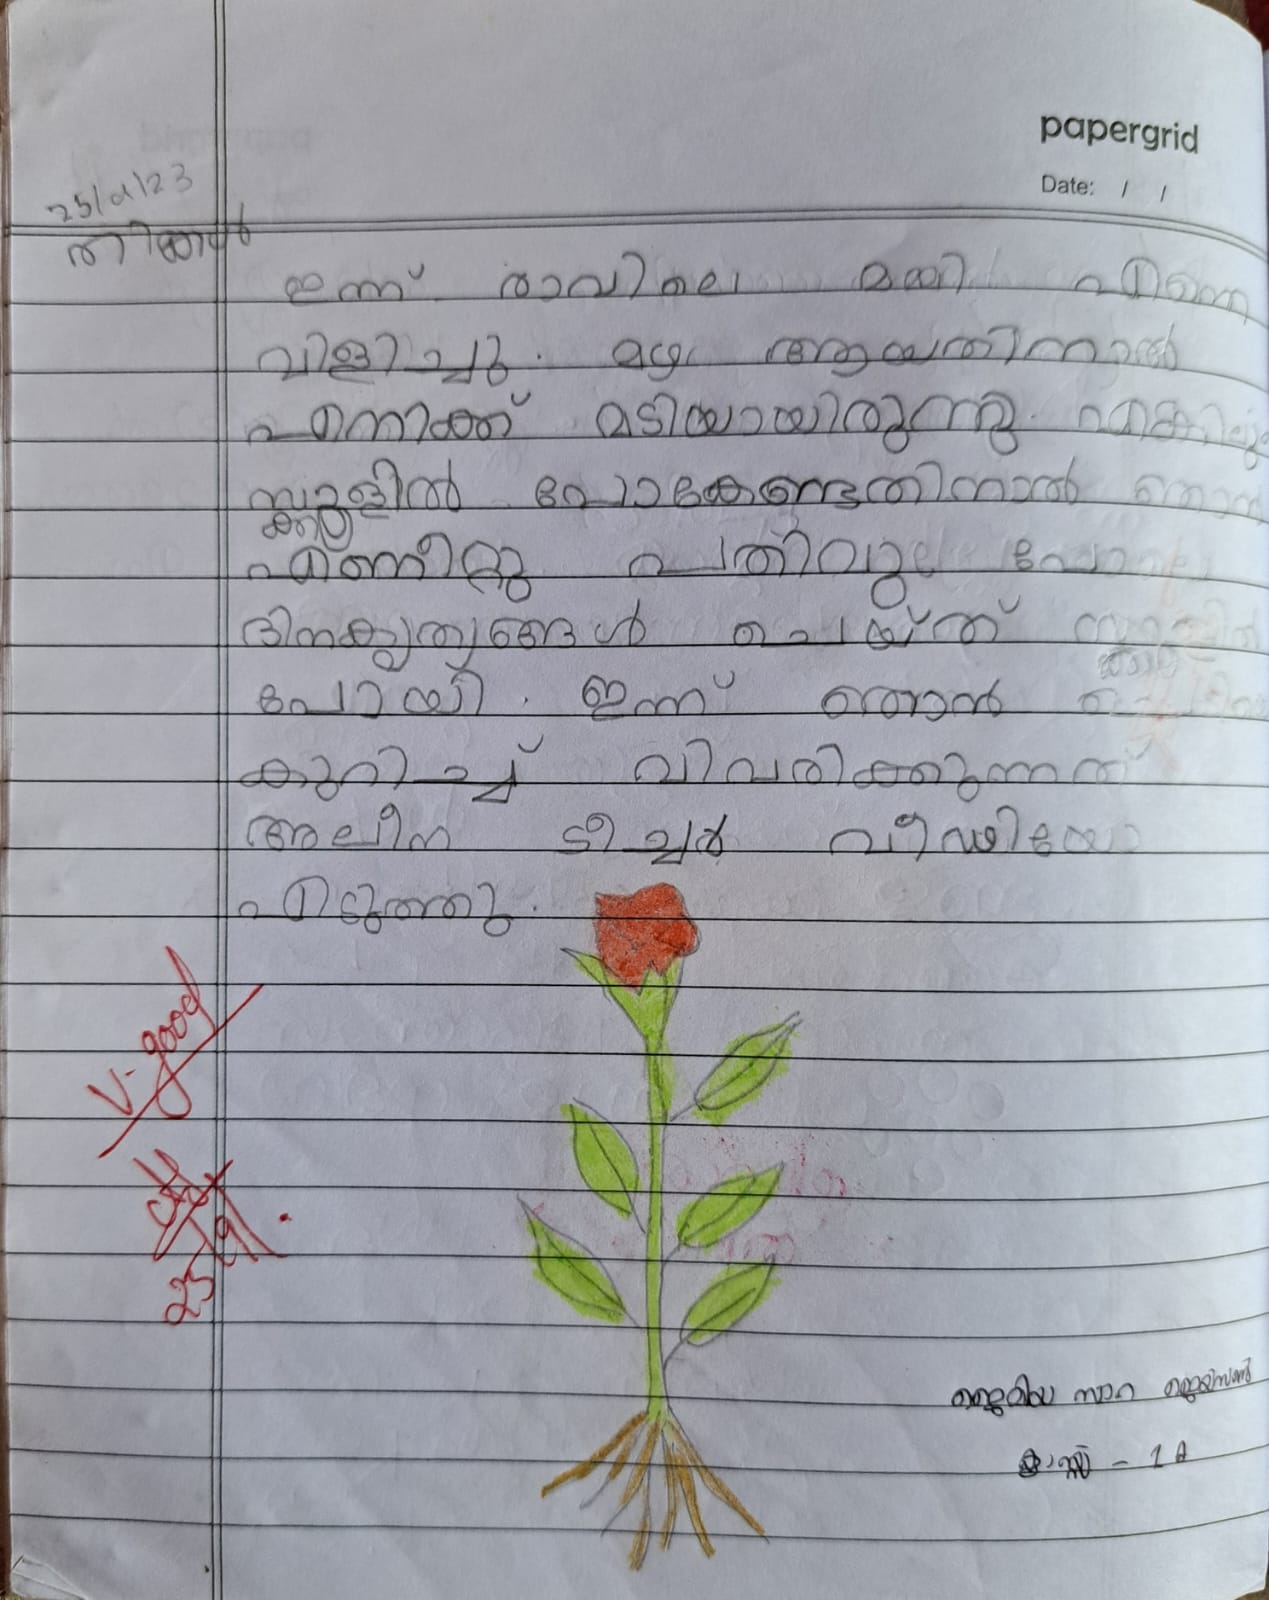 papergrid
Date: / /
25/9/23
തിങ്കൾ
ഇന്ന് രാവിലെ മമ്മി എന്നെ
വിളിച്ചു. മഴ ആയതിനാൽ
എനിക്ക് മടിയായിരുന്നു. എങ്കിലും
പോകേണ്ടതിനാൽ ഞാൻ
എണീറ്റു പതിവുപോലെ
ദിനകൃത്യങ്ങൾ ചെയ്ത്
പോയി. ഇന്ന് ഞാൻ
കുറിച്ച് വിവരിക്കുന്നത്
അലീന ടീച്ചർ വീഡിയോ
എടുത്തു.
V. good
25/9
സാറ
ക്ലാസ്സ് - 1 A